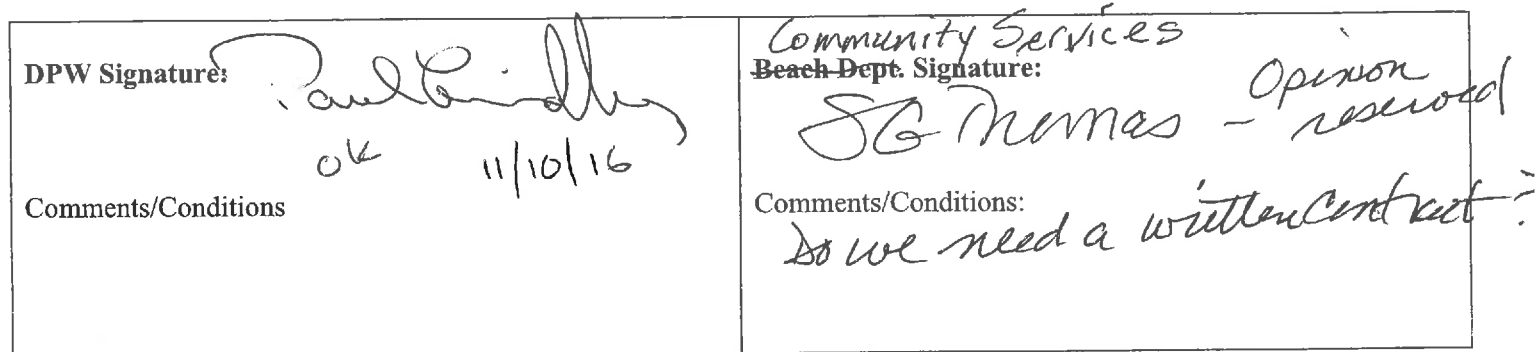 DPW Signature:
Paul
ok 11/10/16
Comments/Conditions
Community Services
Beach Dept. Signature:
SG Thomas - Opinion reserved
Comments/Conditions:
Do we need a written Contract?